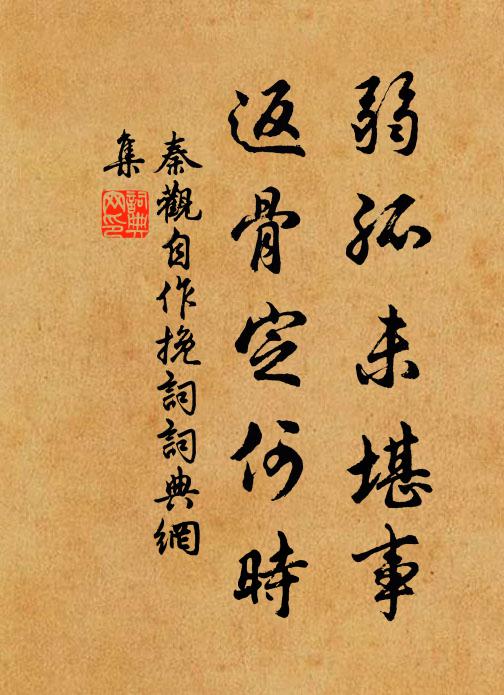 弱孤未堪事
返骨定何時
秦觀自作挽詞詞典網
集
詞典
网印